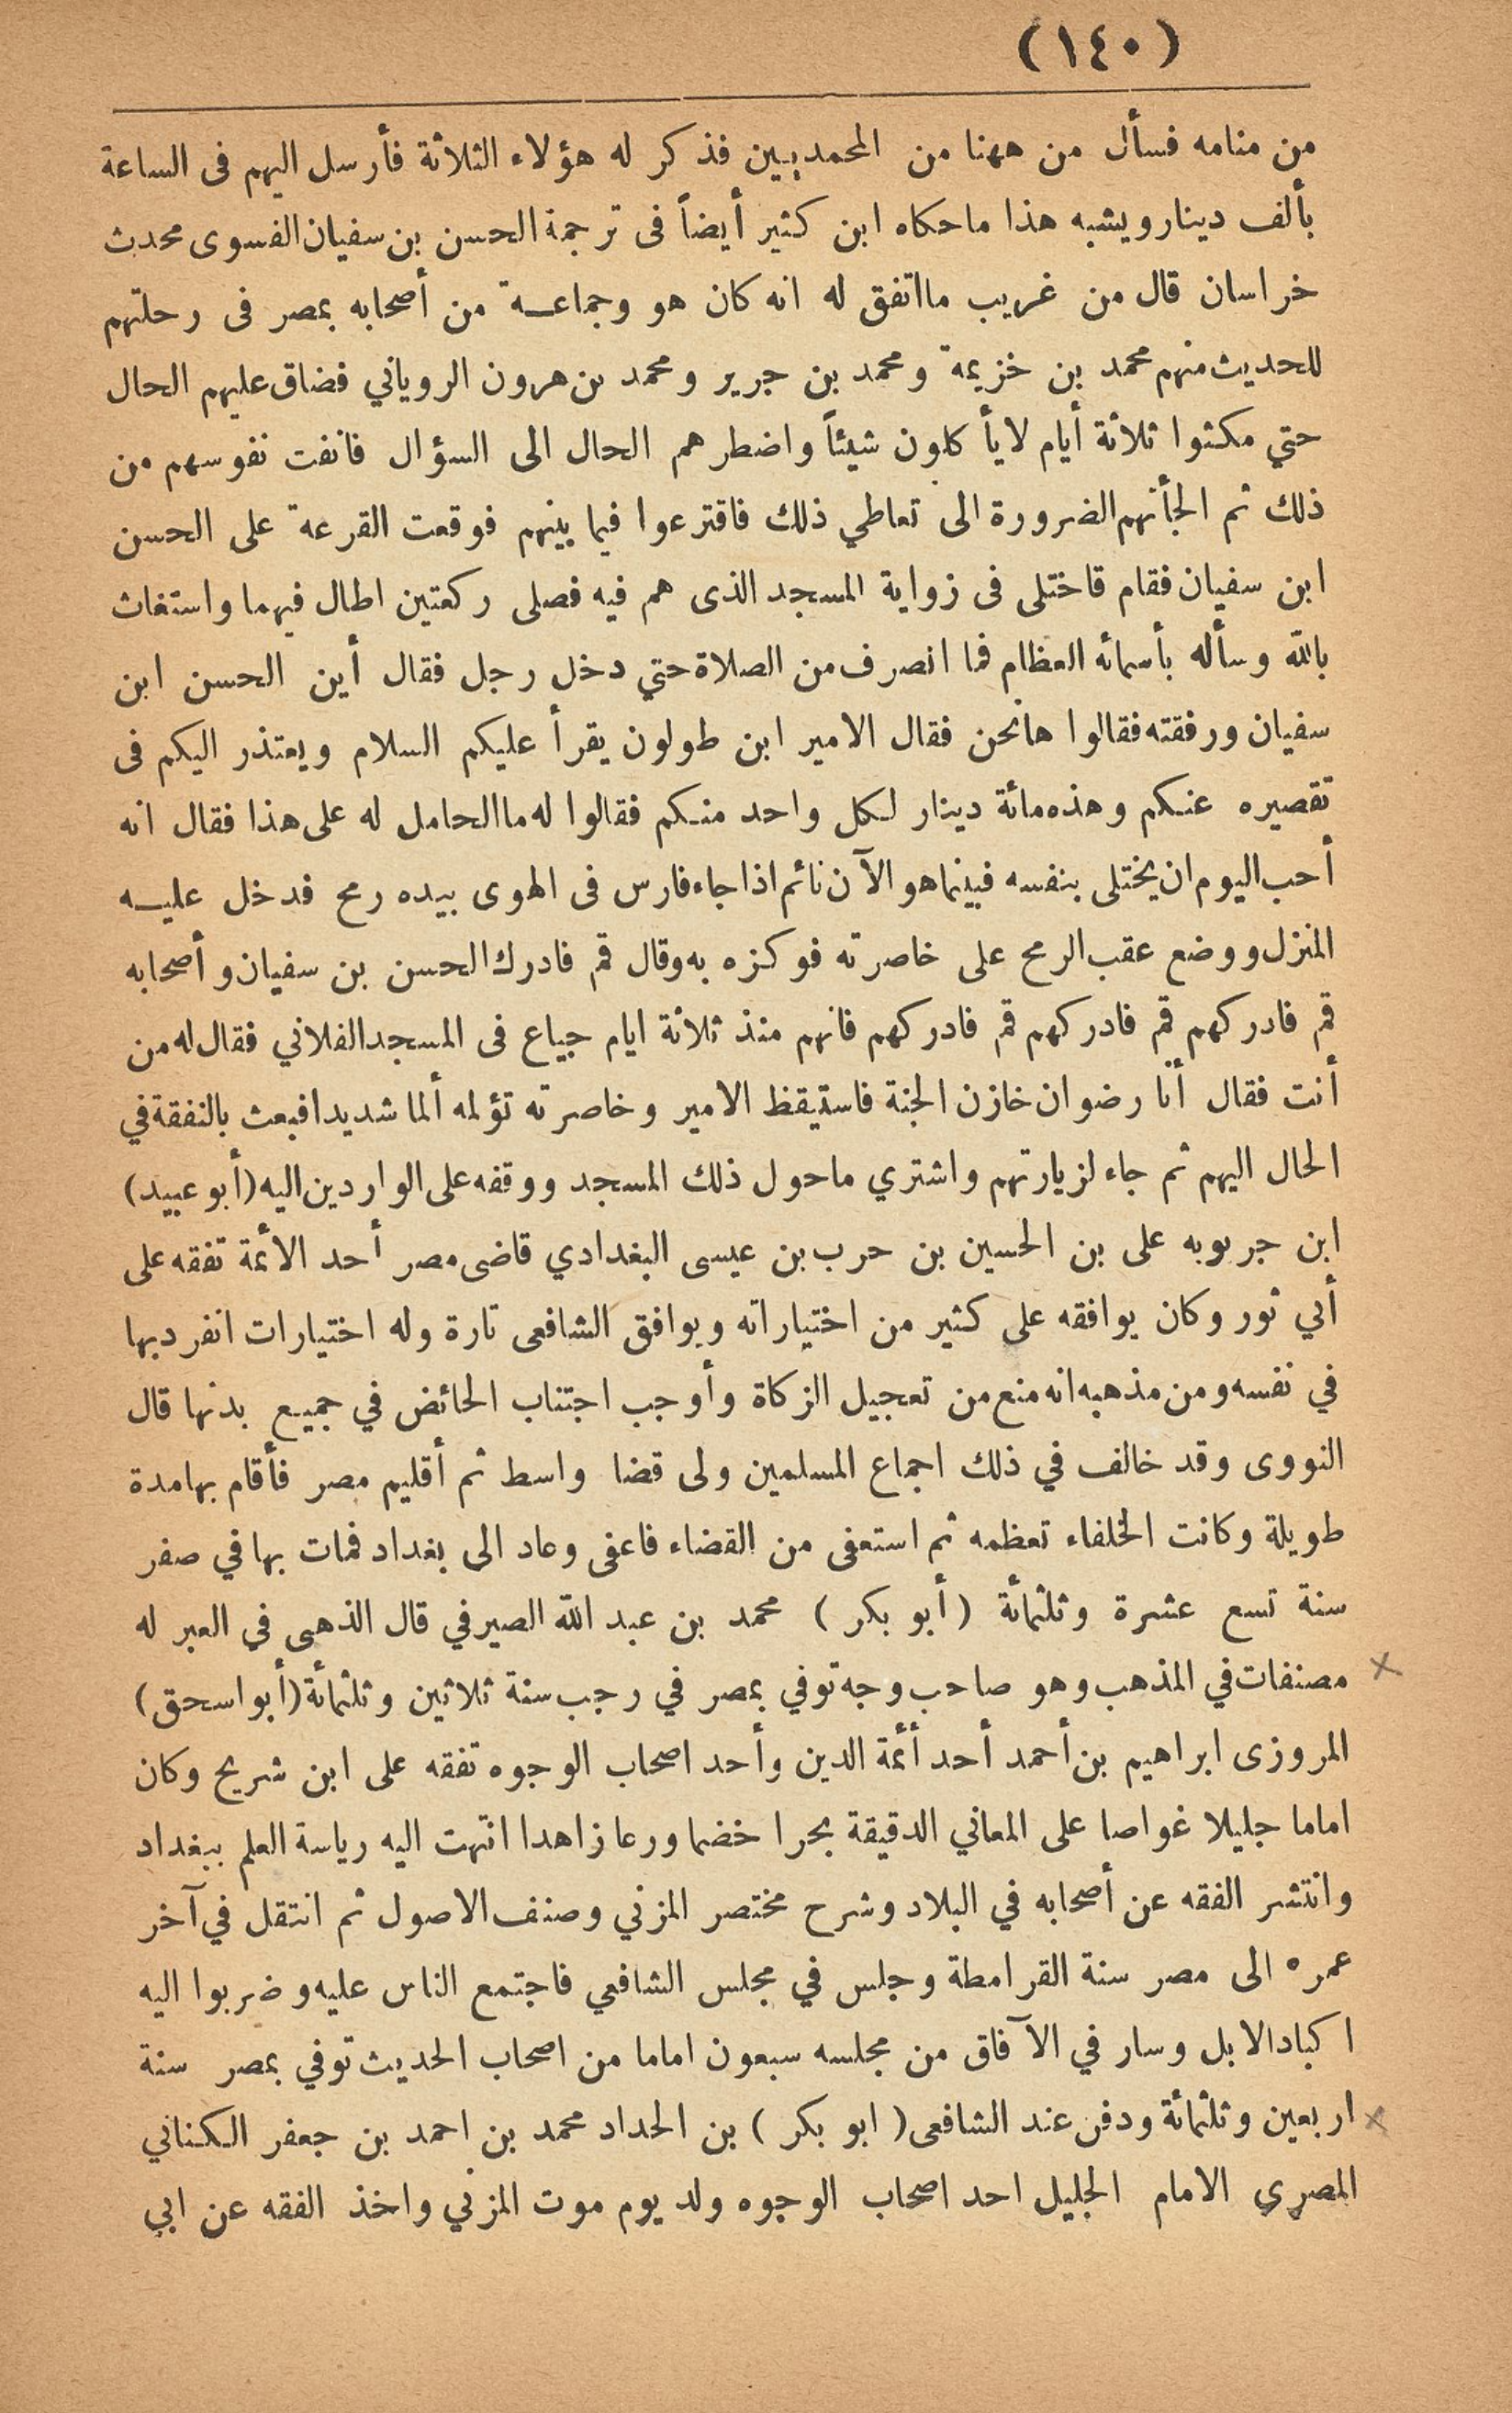 (١٤٠)
من منامه فسأل من ههنا من المحمديين فذكر له هؤلاء الثلاثة فأرسل اليهم فى الساعة
بألف دينار ويشبه هذا ما حكاه ابن كثير أيضاً فى ترجمة الحسن بن سفيان الفسوى محدث
خراسان قال من غريب مااتفق له انه كان هو وجماعة من أصحابه بمصر فى رحلتهم
للحديث منهم محمد بن خزيمة ومحمد بن جرير ومحمد بن هرون الروياني فضاق عليهم الحال
حتي مكثوا ثلاثة أيام لايأكلون شيئاً واضطرهم الحال الى السؤال فانفت نفوسهم من
ذلك ثم الجأتهم الضرورة الى تعاطي ذلك فاقترعوا فيما بينهم فوقعت القرعة على الحسن
ابن سفيان فقام قاختلى فى زواية المسجد الذى هم فيه فصلى ركعتين اطال فيهما واستغاث
بالله وسأله بأسمائه العظام فما انصرف من الصلاة حتي دخل رجل فقال أين الحسن ابن
سفيان ورفقته فقالوا هانحن فقال الامير ابن طولون يقرأ عليكم السلام ويعتذر اليكم فى
تقصيره عنكم وهذه مائة دينار لكل واحد منكم فقالوا له ما الحامل له على هذا فقال انه
أحب اليوم ان يختلى بنفسه فبينما هو الآن نائم اذا جاء فارس فى الهوى بيده رمح فدخل عليه
المنزل ووضع عقب الرمح على خاصرته فوكزه به وقال قم فادرك الحسن بن سفيان وأصحابه
قم فادركهم قم فادركهم قم فادركهم فانهم منذ ثلاثة ايام جياع فى المسجد الفلاني فقال له من
أنت فقال أنا رضوان خازن الجنة فاستيقظ الامير وخاصرته تؤلمه ألما شديدا فبعث بالنفقة في
الحال اليهم ثم جاء لزيارتهم واشتري ماحول ذلك المسجد ووقفه على الواردين اليه (أبو عبيد)
ابن جربويه على بن الحسين بن حرب بن عيسى البغدادي قاضى مصر أحد الأئمة تفقه على
أبي ثور وكان يوافقه على كثير من اختياراته ويوافق الشافعى تارة وله اختيارات انفرد بها
في نفسه ومن مذهبه انه منع من تعجيل الزكاة وأوجب اجتناب الحائض في جميع بدنها قال
النووى وقد خالف في ذلك اجماع المسلمين ولى قضا واسط ثم أقليم مصر فأقام بهامدة
طويلة وكانت الخلفاء تعظمه ثم استعفى من القضاء فاعفى وعاد الى بغداد فمات بها في صفر
سنة تسع عشرة وثلثمائة (أبو بكر) محمد بن عبد الله الصيرفي قال الذهبى في العبر له
مصنفات في المذهب وهو صاحب وجه توفي بمصر في رجب سنة ثلاثين وثلثمائة (أبو اسحق)
المروزى ابراهيم بن أحمد أحد أئمة الدين وأحد اصحاب الوجوه تفقه على ابن شريح وكان
اماما جليلا غواصا على المعاني الدقيقة بحرا خضما ورعا زاهدا انتهت اليه رياسة العلم ببغداد
وانتشر الفقه عن أصحابه في البلاد وشرح مختصر المزني وصنف الاصول ثم انتقل في آخر
عمره الى مصر سنة القرامطة وجلس في مجلس الشافعي فاجتمع الناس عليه وضربوا اليه
اكباد الابل وسار في الآفاق من مجلسه سبعون اماما من اصحاب الحديث توفي بمصر سنة
اربعين وثلثمائة ودفن عند الشافعى (ابو بكر) بن الحداد محمد بن احمد بن جعفر الكناني
المصري الامام الجليل احد اصحاب الوجوه ولد يوم موت المزني واخذ الفقه عن ابي